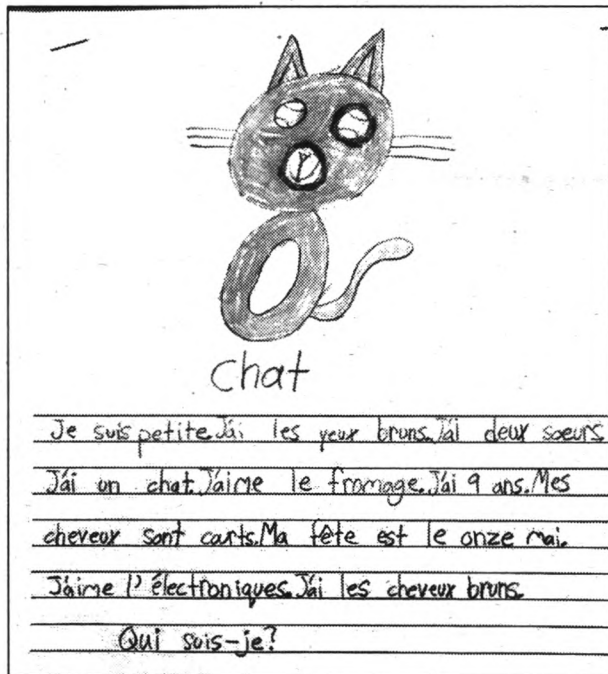 chat
Je suis petite. J'ai les yeux bruns. J'ai deux soeurs
J'ai un chat. J'aime le fromage. J'ai 9 ans. Mes
cheveux sont carts. Ma fête est le onze mai.
J'aime l'électroniques. J'ai les cheveux bruns.
Qui suis-je?